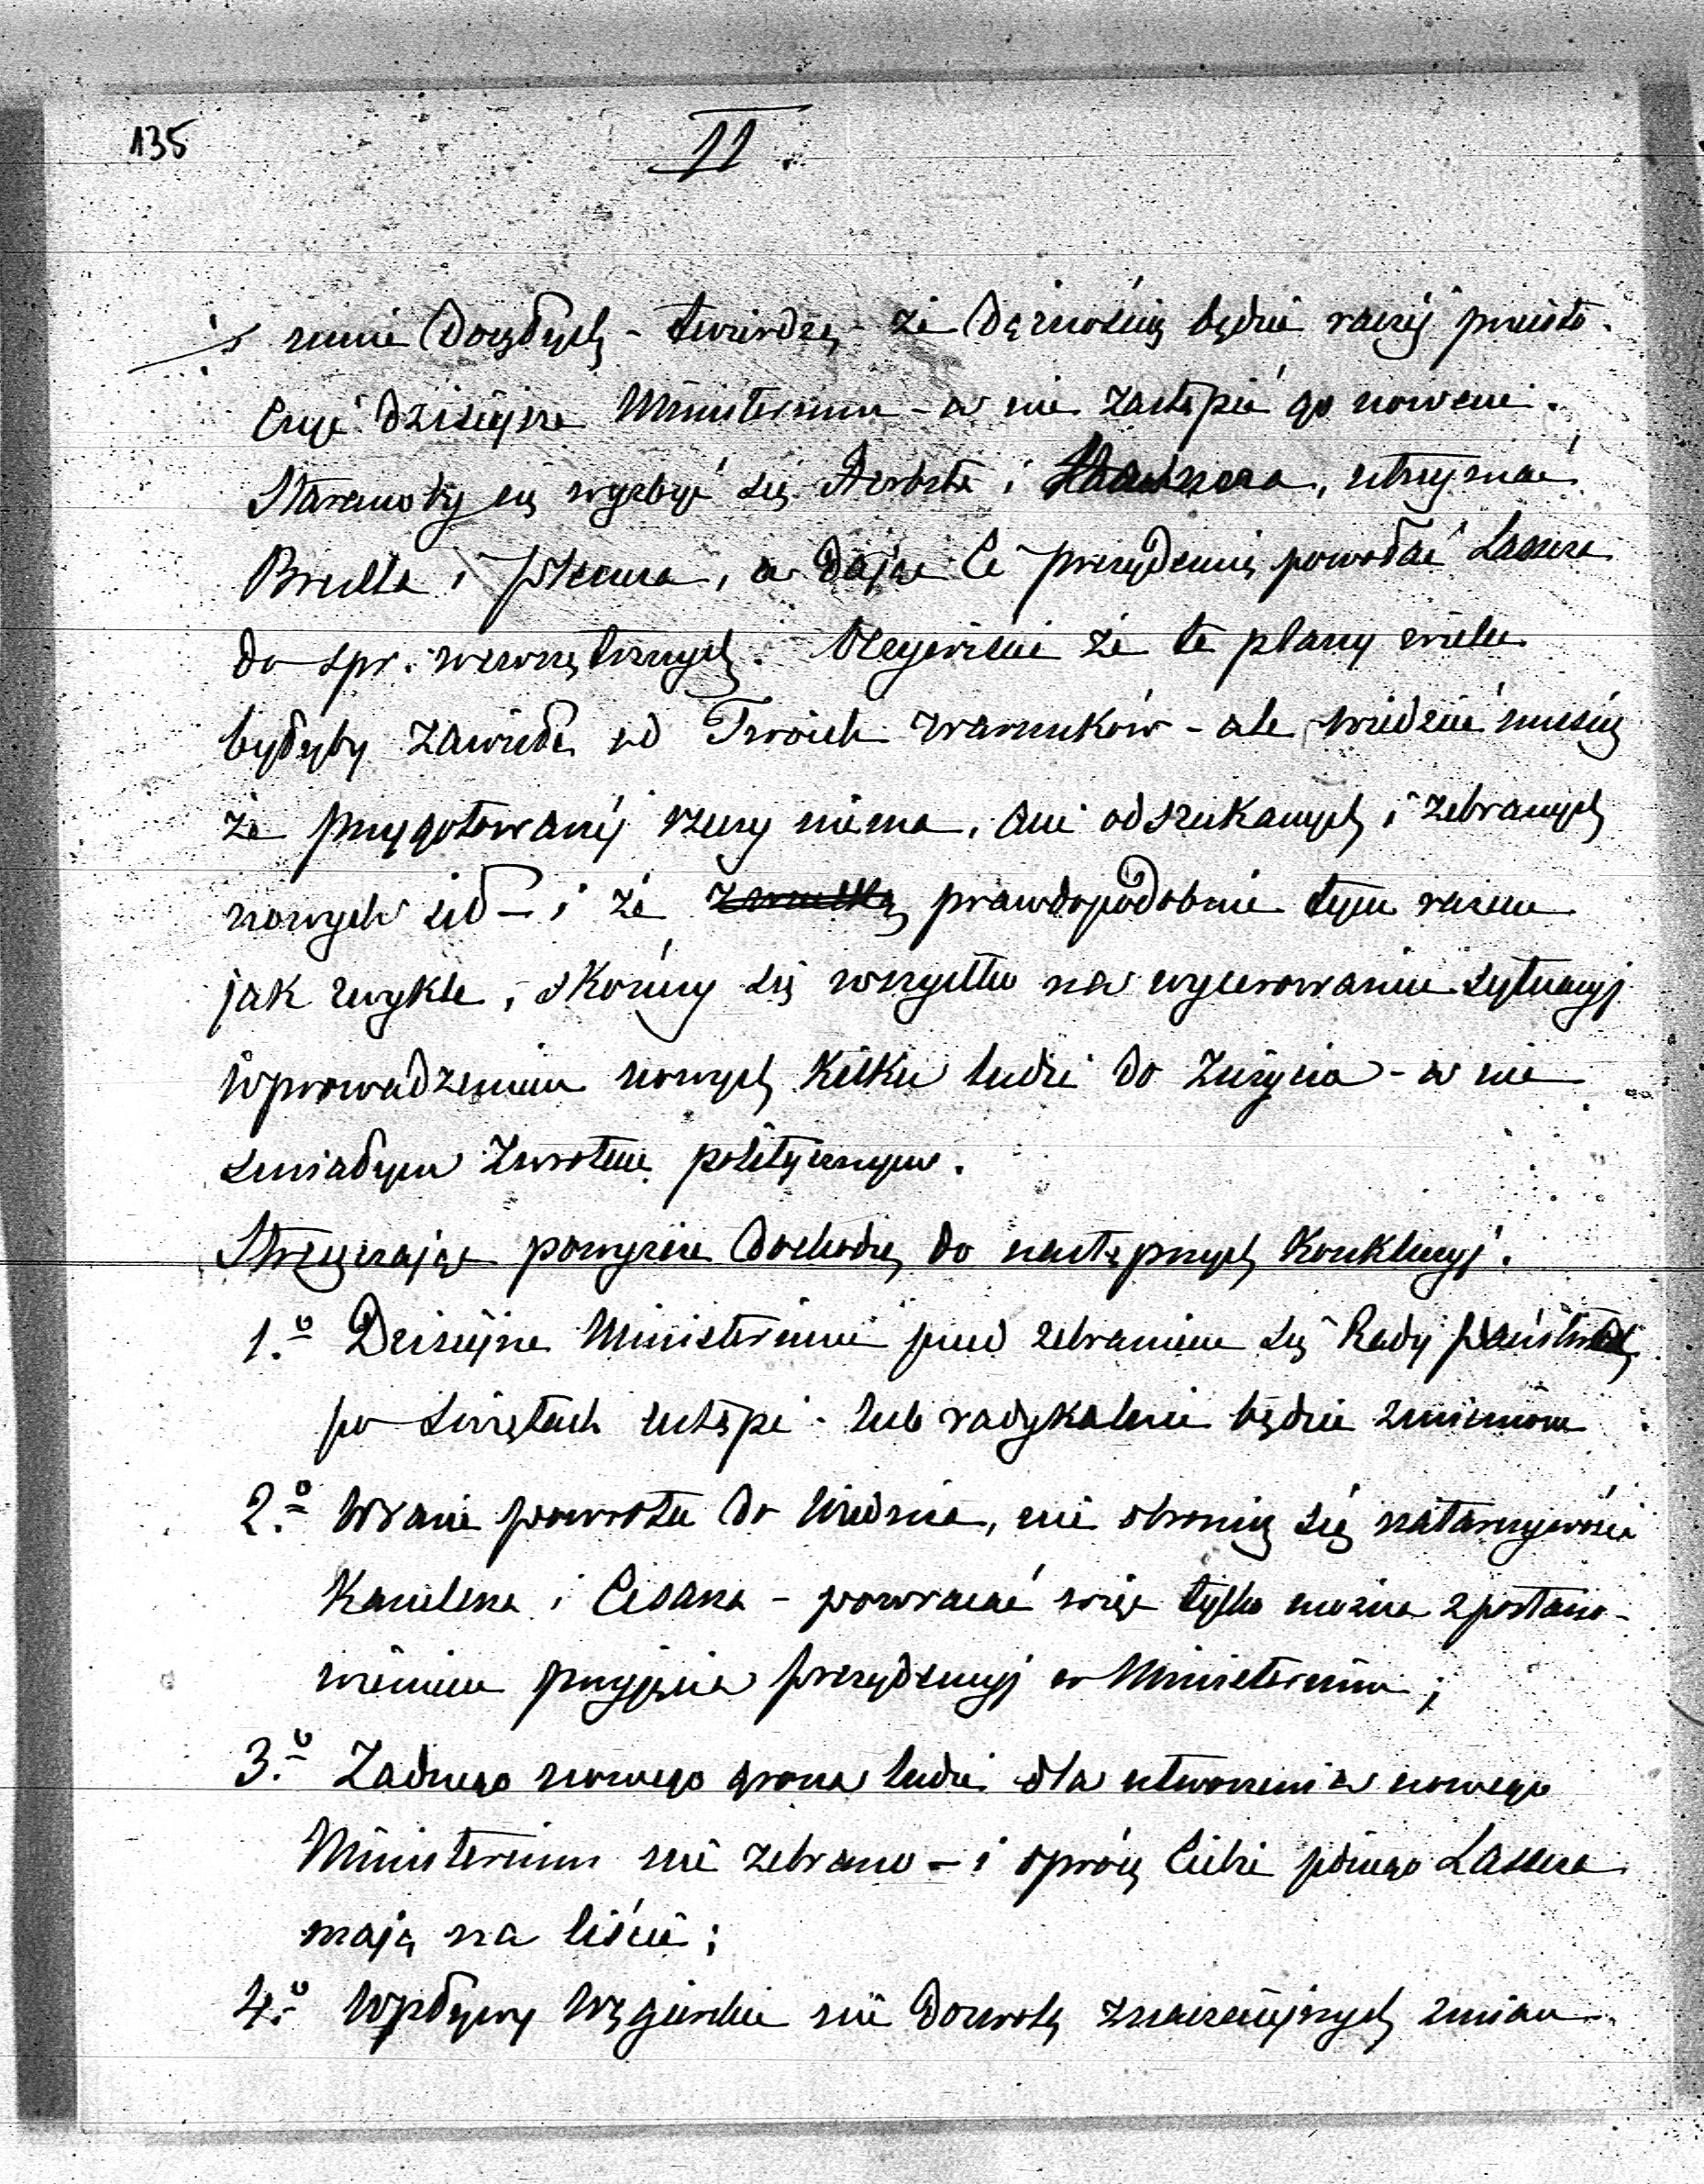 135
II
sunie doszłych - twierdzę - że dążnością będzie raczéj przeisto-
czyć dzisiejsze Ministerium - a nie zastąpić go nowem.
Staranoby się wyzbyć się Herbsta i Hasnera, utrzymać
Brestla i Plenera, a dając Ci prezydencię powołać Lassera
do spr. wewnętrznych. Oczywiście że te plany wiele
byłyby zawisłe od Twoich warunków - ale widzieć musisz
że przygotowanéj rzeczy niema, ani odszukanych i zebranych
nowych sił - i że prawdopodobnie tym razem
jak zwykle, skończy się wszystko na wycerowaniu sytuacyj
wprowadzeniem nowych kilku ludzi do zużycia - a nie
śmiałym zwrotem politycznym.
Streszczając powyższe dochodzę do następnych konkluzyj.
1.o Dzisiejsze Ministerium przed zebraniem się Rady państwa
po świętach ustąpi - lub radykalnie będzie zmienione
2.o W razie powrotu do Wiednia, nie obronisz się natarczywości
Kanclerza i Cesarza - powracać więc tylko można z postano-
wieniem przyjęcia prezydencyj w Ministerium;
3.o Żadnego nowego grona ludzi dla utworzenia nowego
Ministerium nie zebrano - i oprócz Ciebie jednego Lassera
mają na liście;
4.o Wpływy Węgierskie nie dozwolą znaczniejszych zmian